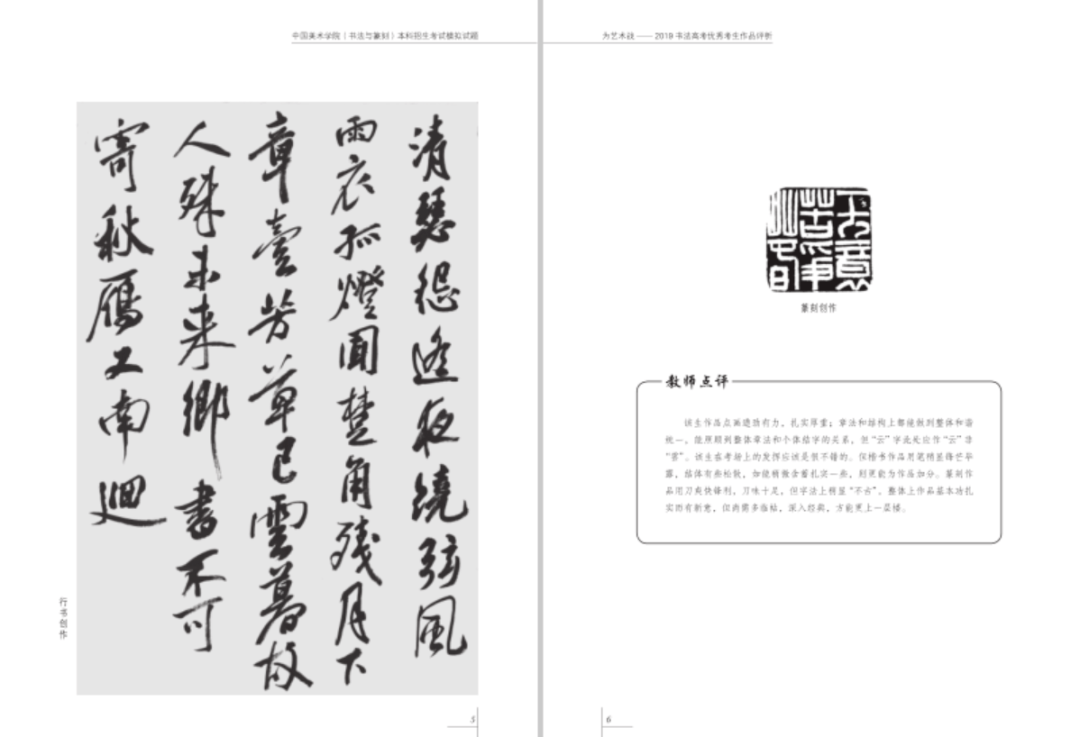 中国美术学院（书法与篆刻）本科招生考试模拟试题
清瑟怨遙夜繞弦風
雨哀孤燈聞楚角殘月下
章臺芳草已雲暮故
人殊未來鄉書不可
寄秋雁又南迴
行书创作
5
为艺术战——2019书法高考优秀考生作品评析
篆刻创作
教师点评
该生作品点画遒劲有力、扎实厚重；章法和结构上都能做到整体和谐
统一，能照顾到整体章法和个体结字的关系，但“云”字此处应作“云”非
“雲”。该生在考场上的发挥应该是很不错的。但楷书作品用笔稍显锋芒毕
露，结体有些松散，如能稍微含蓄扎实一些，则更能为作品加分。篆刻作
品用刀爽快锋利，刀味十足，但字法上稍显“不古”。整体上作品基本功扎
实而有新意，但尚需多临帖，深入经典，方能更上一层楼。
6